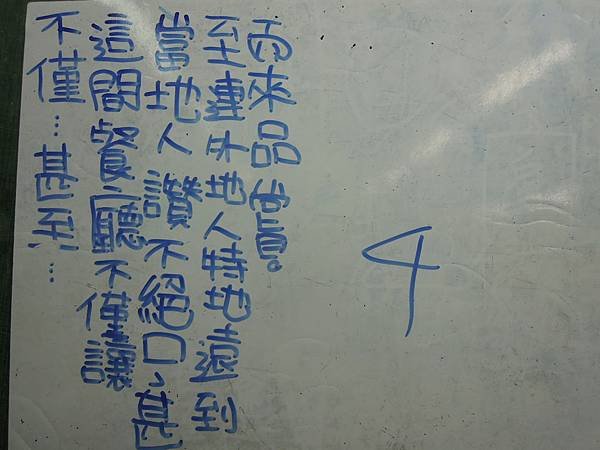 不僅…甚至…
這間餐廳不僅讓
當地人讚不絕口，甚
至連外地人特地遠到
而來品嘗。
4